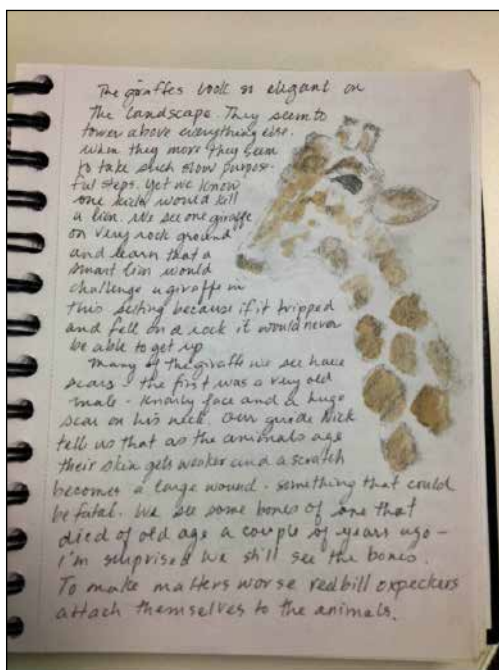 The giraffes look so elegant on
the landscape. They seem to
tower above everything else.
When they move they seem
to take such slow purpose-
ful steps. Yet we know
one kick would kill
a lion. We see one giraffe
on very rock ground
and learn that a
smart lion would
challenge a giraffe in
this setting because if it tripped
and fell on a rock it would never
be able to get up
Many of the giraffe we see have
scars - the first was a very old
male - knarly face and a huge
scar on his neck. Our guide Nick
tell us that as the animals age
their skin gets weaker and a scratch
becomes a large wound - something that could
be fatal. We see some bones of one that
died of old age a couple of years ago -
I'm surprised we still see the bones.
To make matters worse redbill oxpeckers
attach themselves to the animals.